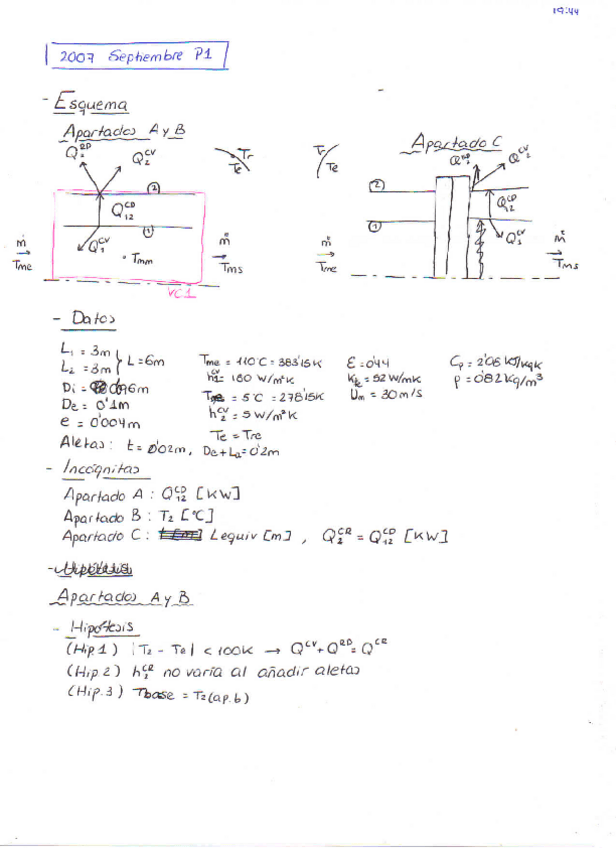 19:44
2007 Septiembre P1
- Esquema
Apartados A y B
Apartado C
Q2^RD
Q2^CV
Tr
Te
Q12^CD
Q1^CV
Tmm
ṁ
Tme
ṁ
Tms
VC1
①
②
Tr
Te
Q2^RD
Q2^CV
Q12^CD
Q1^CV
ṁ
Tme
ṁ
Tms
①
②
- Datos
L1 = 3m
L2 = 3m
L = 6m
Di = 0'096m
De = 0'1m
e = 0'004m
Aletas: t = 0'02m, De+La = 0'2m
Tme = 110°C = 383'15K
h1^CV = 180 W/m²K
= 5°C = 278'15K
h2^CV = 5 W/m²K
Te = Tre
E = 0'44
= 52 W/mK
Um = 30 m/s
Cp = 2'06 KJ/KgK
ρ = 0'82 Kg/m³
- Incógnitas
Apartado A : Q12^CD [KW]
Apartado B : T2 [°C]
Apartado C : Lequiv [m] , Q2^CR = Q12^CD [KW]
Apartados A y B
- Hipótesis
(Hip. 1) |T2 - Te| < 100K → Q^CV + Q^RD = Q^CR
(Hip 2) h2^CR no varía al añadir aletas
(Hip. 3) Tbase = T2 (ap. b)